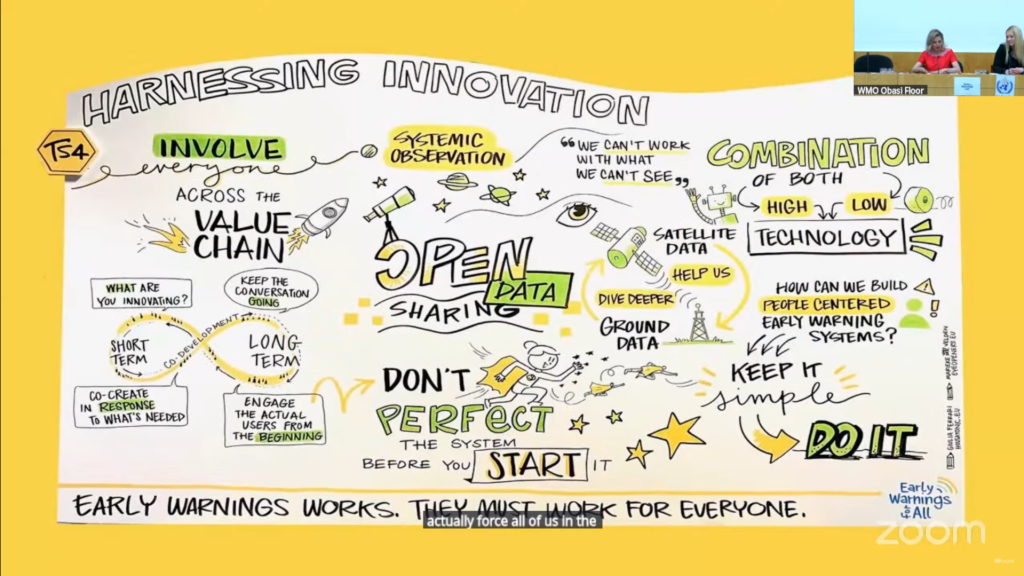 WMO Obasi Floor
HARNESSING INNOVATION
TS4
INVOLVE
everyone
ACROSS THE
VALUE
CHAIN
SYSTEMIC
OBSERVATION
"WE CAN'T WORK
WITH WHAT
WE CAN'T SEE"
COMBINATION
OF BOTH
HIGH
LOW
TECHNOLOGY
OPEN
DATA
SHARING
SATELLITE
DATA
HELP US
DIVE DEEPER
GROUND
DATA
WHAT ARE
YOU INNOVATING?
KEEP THE
CONVERSATION
GOING
SHORT
TERM
CO-DEVELOPMENT
LONG
TERM
CO-CREATE
IN RESPONSE
TO WHAT'S NEEDED
ENGAGE
THE ACTUAL
USERS FROM
THE BEGINNING
HOW CAN WE BUILD
PEOPLE CENTERED
EARLY WARNING
SYSTEMS?
KEEP IT
simple
DO IT
DON'T
PERFECT
THE SYSTEM
BEFORE YOU START IT
EARLY WARNINGS WORKS. THEY MUST WORK FOR EVERYONE.
actually force all of us in the
Early
Warnings
4 All
zoom